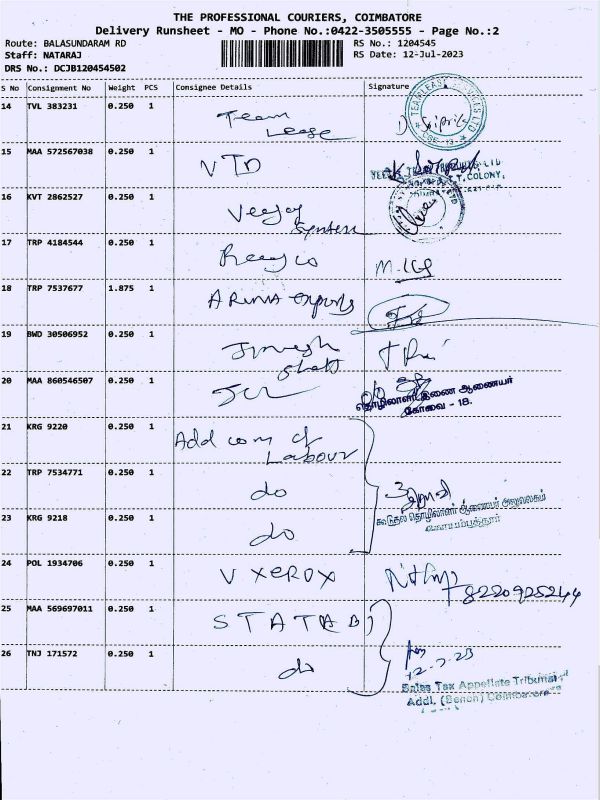 THE PROFESSIONAL COURIERS, COIMBATORE
Delivery Runsheet - MO - Phone No.:0422-3505555 - Page No.:2
Route: BALASUNDARAM RD RS No.: 1204545
Staff: NATARAJ RS Date: 12-Jul-2023
DRS No.: DCJB120454502
S No Consignment No Weight PCS Consignee Details Signature
14 TVL 383231 0.250 1 Team
Lease
15 MAA 572567038 0.250 1 VTD
16 KVT 2862527 0.250 1 Veejay
17 TRP 4184544 0.250 1
18 TRP 7537677 1.875 1 ARUNA exports
19 BWD 30506952 0.250 1
20 MAA 860546507 0.250 1 JCL
தொழிலாளர் இணை ஆணையர்
கோவை - 18.
21 KRG 9220 0.250 1 Add com of
Labour
22 TRP 7534771 0.250 1 do
கூடுதல் தொழிலாளர் ஆணையர் அலுவலகம்
23 KRG 9218 0.250 1 do
24 POL 1934706 0.250 1 V XEROX
8220925244
25 MAA 569697011 0.250 1 STAT(AB)
26 TNJ 171572 0.250 1 do
12-7-23
Sales Tax Appellate Tribunal
Addl. (Bench) Coimbatore